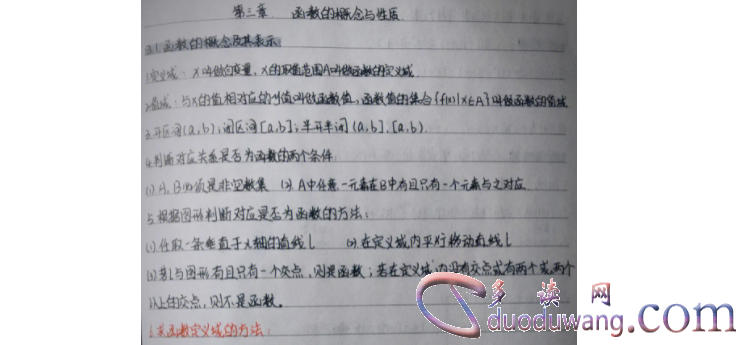 第三章 函数的概念与性质
3.1 函数的概念及其表示
1.定义域：x叫做自变量，x的取值范围A叫做函数的定义域
2.值域：与x的值相对应的y值叫做函数值，函数值的集合{f(x)|x∈A}叫做函数的值域
3.开区间(a,b)；闭区间[a,b]；半开半闭(a,b]，[a,b)
4.判断对应关系是否为函数的两个条件
(1)A、B必须是非空数集 (2)A中任意一元素在B中有且只有一个元素与之对应
5.根据图形判断对应是否为函数的方法：
(1)任取一条垂直于x轴的直线l (2)在定义域内平行移动直线l
(3)若l与图形有且只有一个交点，则是函数；若在定义域内没有交点或有两个或两个
以上的交点，则不是函数。
6.求函数定义域的方法：
多读网
duoduwang.com